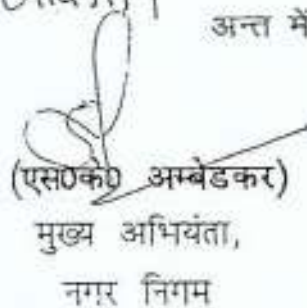 अन्त में
(एस0के0 अम्बेडकर)
मुख्य अभियंता,
नगर निगम